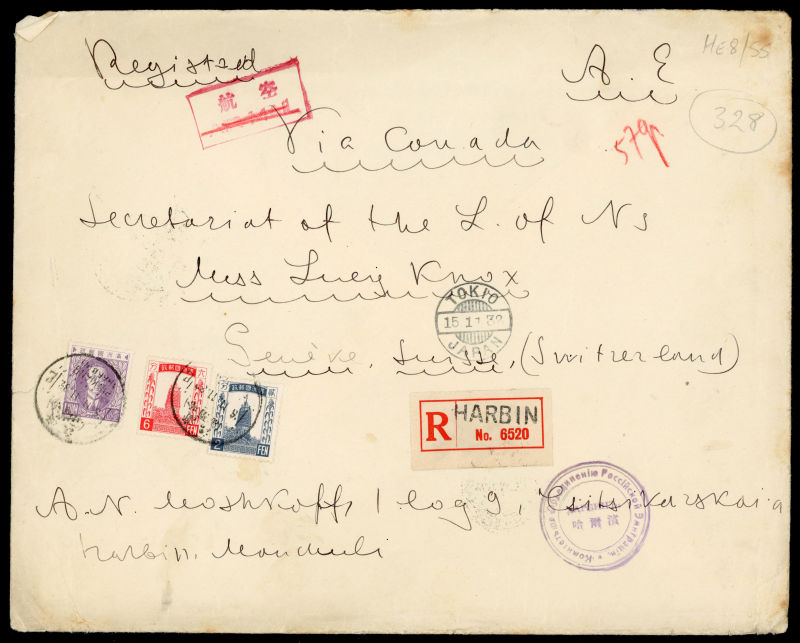 Registered
A. E
HE8/55
航空
328
Via Canada
Secretariat of the L. of Ns
Miss Lucy Knox
TOKIO
15.11.32
JAPAN
Genève, Suisse, (Switzerland)
6 FEN
2 FEN
R HARBIN
No. 6520
A. N. Moshkoff, 1 log 9, Tsitsikarskaia
Harbin, Manchuli
哈爾濱